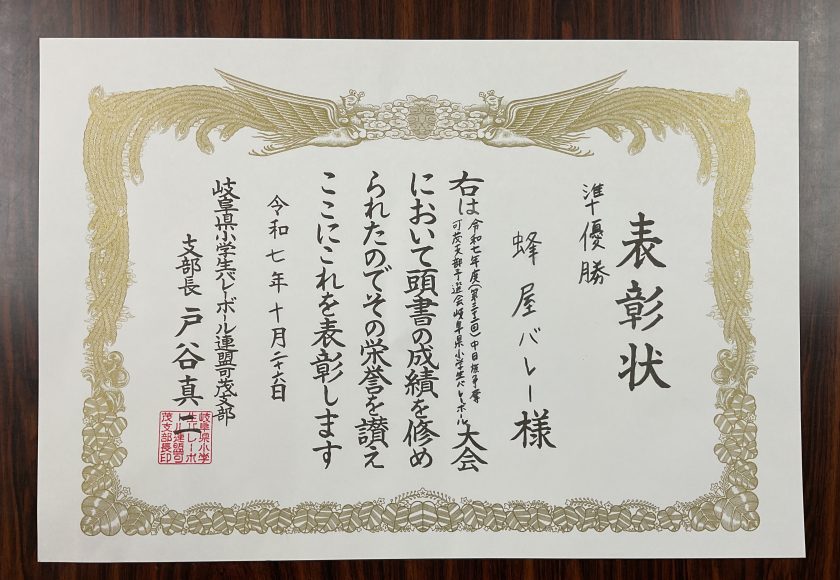 表彰状
準優勝
蜂屋バレー様
右は令和七年度(第三十五回)中日旗争奪
可茂支部予選会岐阜県小学生バレーボール大会
において頭書の成績を修め
られたのでその栄誉を讃え
ここにこれを表彰します
令和七年十月二十六日
岐阜県小学生バレーボール連盟可茂支部
支部長 戸谷真二
岐阜県小学
生バレーボ
ール連盟可
茂支部長印